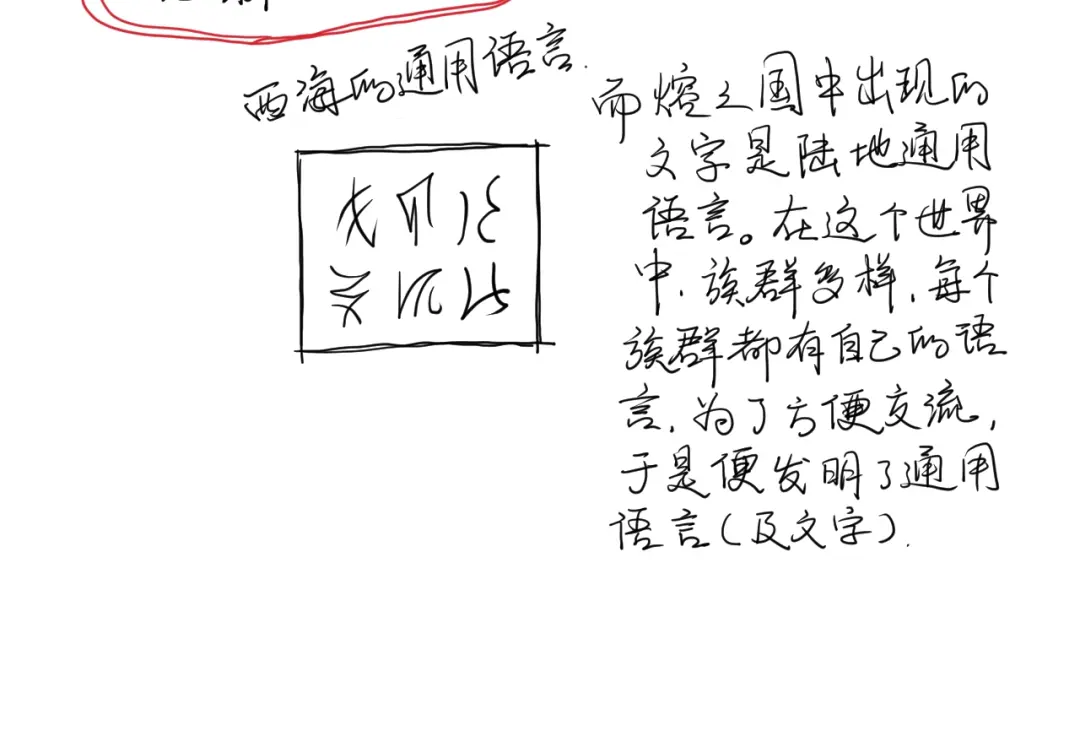 西海的通用语言.
而熔之国中出现的
文字是陆地通用
语言。在这个世界
中.族群多样,每个
族群都有自己的语
言,为了方便交流,
于是便发明了通用
语言(及文字).